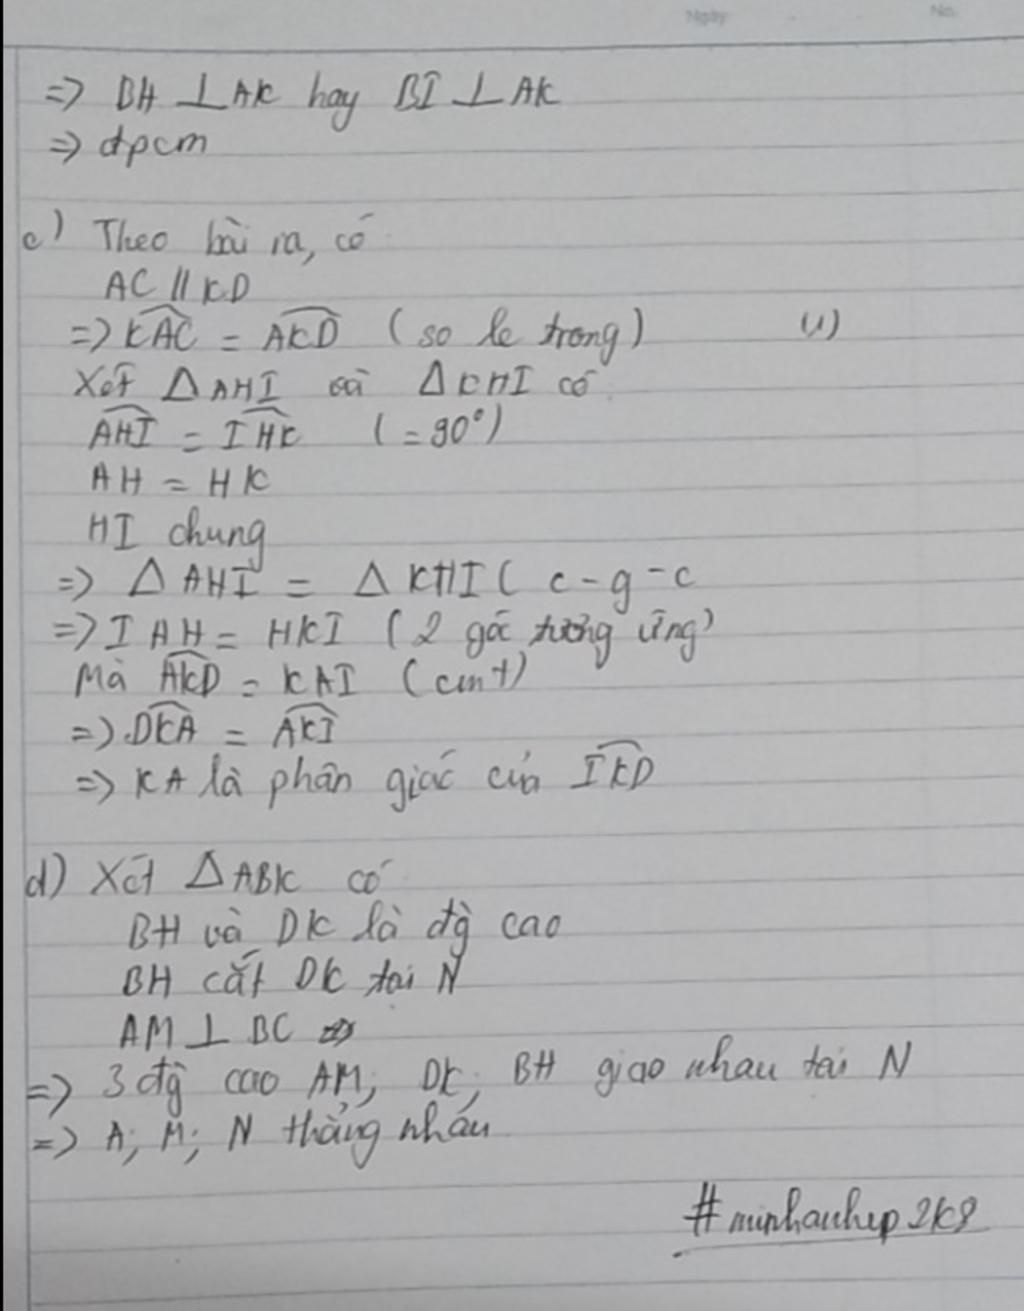 Ngày No.
=> BH ⊥ AK hay BI ⊥ AK
=> đpcm
c) Theo bài ra, có
AC // KD
=> \widehat{KAC} = \widehat{AKD} (so le trong) (1)
Xét Δ AHI và Δ KHI có
\widehat{AHI} = \widehat{IHK} (= 90°)
AH = HK
HI chung
=> Δ AHI = Δ KHI ( c - g - c
=> IAH = HKI (2 góc tương ứng)
Mà \widehat{AKD} = KAI (cmt)
=> \widehat{DKA} = \widehat{AKI}
=> KA là phân giác của \widehat{IKD}
d) Xét Δ ABK có
BH và DK là đg cao
BH cắt DK tại N
AM ⊥ BC =>
=> 3 đg cao AM; DK; BH giao nhau tại N
=> A; M; N thẳng nhau